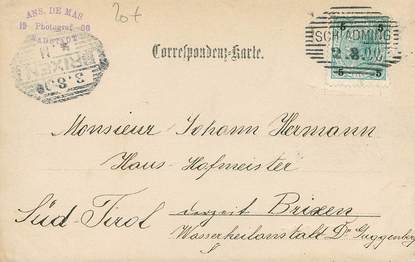 ANS. DE MAS
19 Photograf 00
RADSTADT
20+
BRIXEN
3.8.00
Correspondenz-Karte.
5 5
SCHLADMING
2.8.00
5 5
Monsieur Johann Hermann
Haus-Hofmeister
Süd-Tirol derzeit Brixen
Wasserheilanstalt Dr Guggenberg